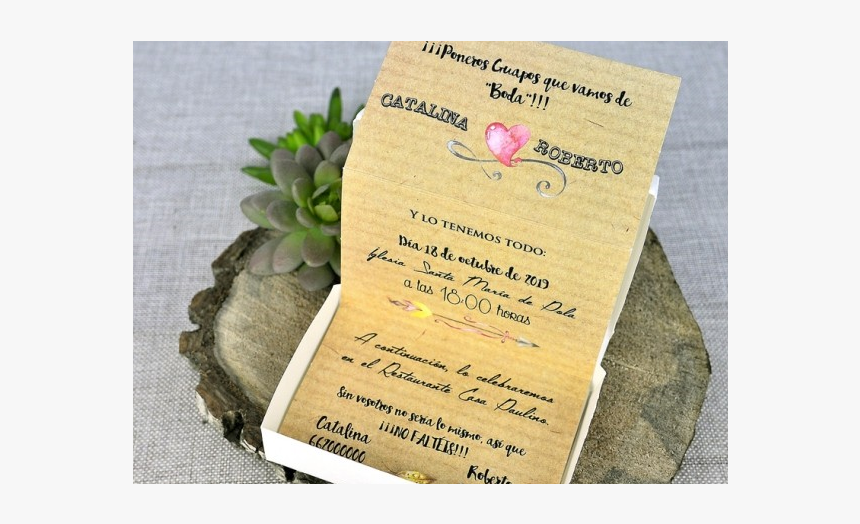 ¡¡¡Poneros Guapos que vamos de
"Boda"!!!
CATALINA
ROBERTO
Y LO TENEMOS TODO:
Día 18 de octubre de 2019
Iglesia Santa María de Pola
a las 18:00 horas
A continuación, lo celebraremos
en el Restaurante Casa Paulino.
Sin vosotros no sería lo mismo, así que
¡¡¡NO FALTÉIS!!!
Catalina
667000000
Roberto